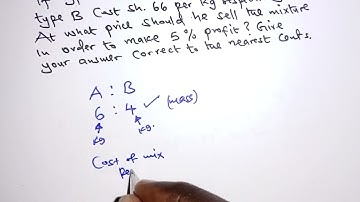 type B Cost sh. 66 per kg
At what price should he sell the mixture
in order to make 5% profit? Give
your answer correct to the nearest cents.
A : B
6 : 4 ✓ (mass)
kg kg.
Cost of mix
Pe